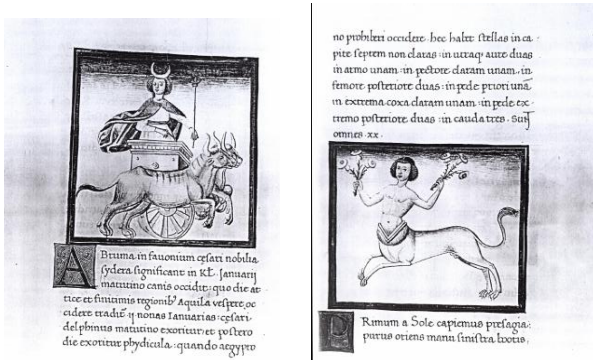 A Bruma in favonium cęsari nobilia
sydera significant in Kl. Ianuarij
matutino canis occidit: quo die at
tice et finitimis regionib3 Aquila vespere oc
cidere tradit: ij nonas Ianuarias: cęsari:
delphinus matutino exoritur: et postero
die exoritur phydicula: quando aegypto
no prohiberi occidere. hec habet stellas in ca
pite septem non claras: in utraq: aure duas
in armo unam: in pectore claram unam. in
femore posteriore duas: in pede priori unā
in extrema coxa claram unam: in pede ex
tremo posteriore duas: in cauda tres. Sunt
omnes. xx.
PRimum a Sole capiemus presagia:
purus oriens